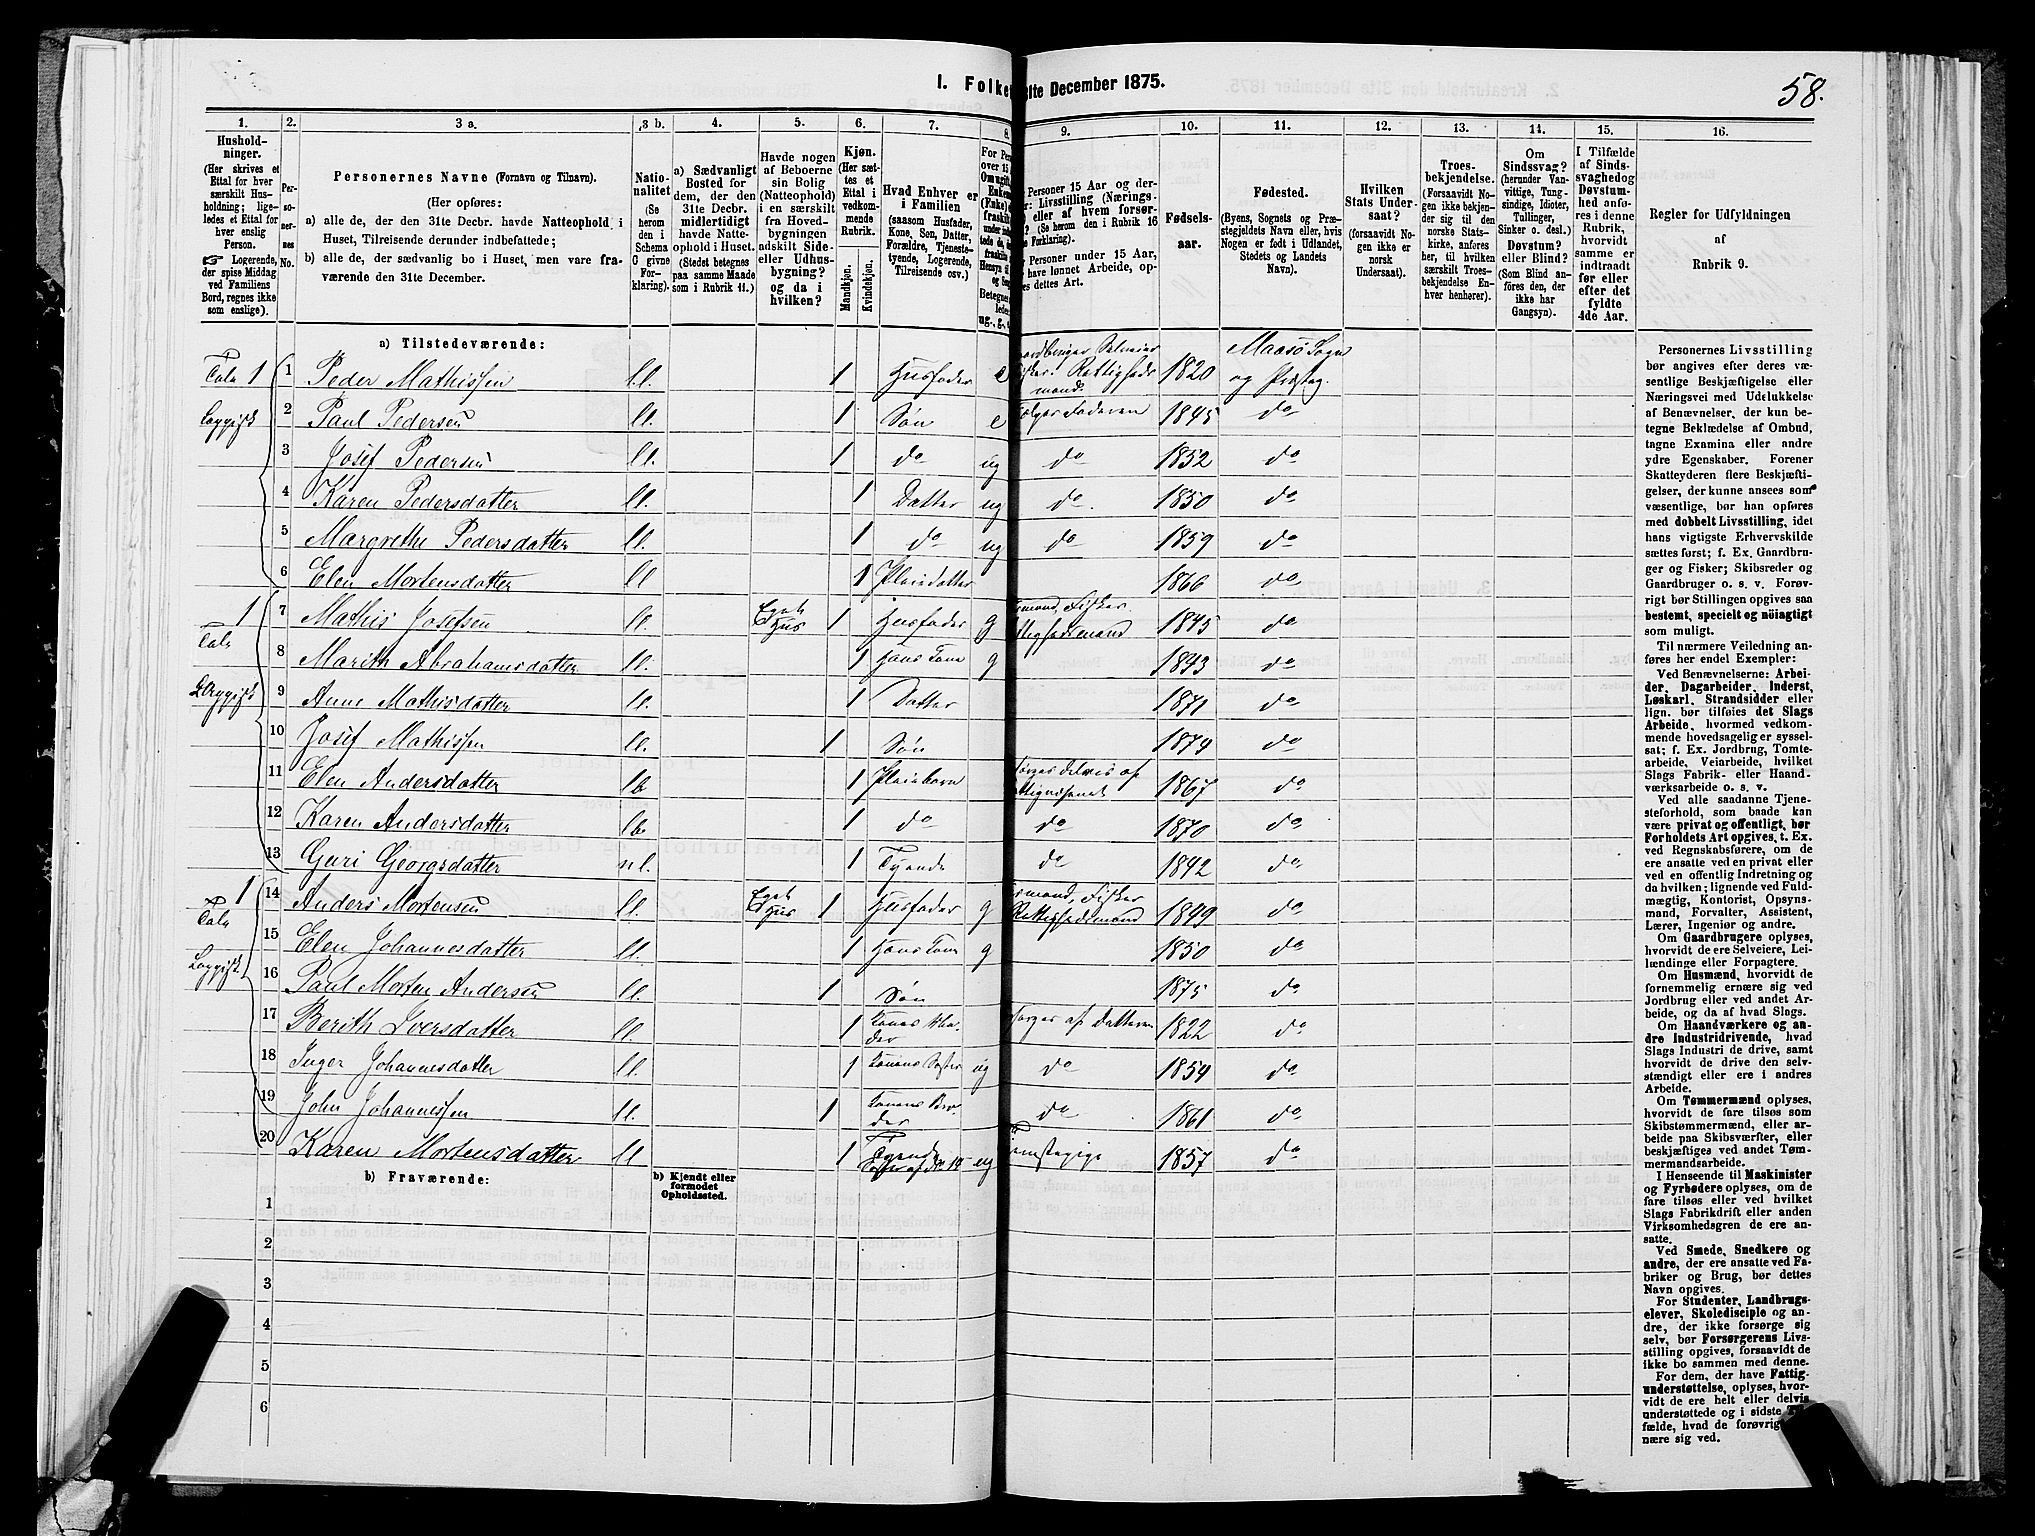 I. Folke
31te December 1875.
58.
1.
2.
3 a.
3 b.
4.
5.
6.
7.
8.
9.
10.
11.
12.
13.
14.
15.
16.
Hushold-
ninger.
(Her skrives et
Ettal for hver
særskilt Hus-
holdning; lige-
ledes et Ettal for
hver enslig
Person.
Logerende,
der spise Middag
ved Familiens
Bord, regnes ikke
som enslige).
Per-
so-
ner-
nes
No.
Personernes Navne (Fornavn og Tilnavn).
(Her opføres:
a) alle de, der den 31te Decbr. havde Natteophold i
Huset, Tilreisende derunder indbefattede;
b) alle de, der sædvanlig bo i Huset, men vare fra-
værende den 31te December.
Natio-
nalitet
(Se
herom
den i
Schema
C givne
For-
klaring).
a) Sædvanligt
Bosted for
dem, der den
31te Decbr.
midlertidigt
havde Natte-
ophold i Huset.
(Stedet betegnes
paa samme Maade
som i Rubrik 11.)
Havde nogen
af Beboerne
sin Bolig
(Natteophold)
i en særskilt
fra Hoved-
bygningen
adskilt Side-
eller Udhus-
bygning?
og da i
hvilken?
Kjøn.
(Her sæt-
tes et
Ettal i
vedkom-
mende
Rubrik.
Mandkjøn.
Kvindekjøn.
Hvad Enhver er
i Familien
(saasom Husfader,
Kone, Søn, Datter,
Forældre, Tjeneste-
tyende, Logerende,
Tilreisende osv.)
For Per
over 15
ug., g.,
Personer 15 Aar og der-
Livsstilling (Nærings-
eller af hvem forsør-
(Se herom den i Rubrik 16
Forklaring).
Personer under 15 Aar,
have lønnet Arbeide, op-
dettes Art.
Fødsels-
aar.
Fødested.
(Byens, Sognets og Præ-
stegjeldets Navn eller, hvis
Nogen er født i Udlandet,
Stedets og Landets
Navn).
Hvilken
Stats Under-
saat?
(forsaavidt No-
gen ikke er
norsk
Undersaat).
Troes-
bekjendelse.
(Forsaavidt No-
gen ikke bekjen-
der sig til den
norske Stats-
kirke, anføres
her, til hvilken
særskilt Troes-
bekjendelse En-
hver henhører).
Om
Sindssvag?
(herunder Van-
vittige, Tung-
sindige, Idioter,
Tullinger,
Sinker o. desl.)
Døvstum?
eller Blind?
(Som Blind an-
føres den, der
ikke har
Gangsyn).
I Tilfælde
af Sinds-
svaghed og
Døvstum-
hed anfø-
res i denne
Rubrik,
hvorvidt
samme er
indtraadt
før eller
efter det
fyldte
4de Aar.
Regler for Udfyldningen
af
Rubrik 9.
a) Tilstedeværende:
1 1 Peder Mathissen l.l. 1 Husfader e Rettigheds mand. 1820 Maasø Sogn og Præstg.
2 Paul Pedersen ll. 1 Søn e Faderen 1845 do
3 Josef Pedersen ll. 1 do ug do 1852 do
4 Karen Pedersdatter ll. 1 Datter ug do 1850 do
5 Margrethe Pedersdatter ll. 1 do ug do 1859 do
6 Elen Mortensdatter ll 1 Pleiedatter 1866 do
1 7 Mathis Josefsen ll. Eget Hus 1 Husfader g Fisker 1845 do
8 Marith Abrahamsdatter ll. 1 Hans Kone g 1843 do
9 Anne Mathisdatter ll. 1 Datter 1871 do
10 Josef Mathissen ll. 1 Søn 1874 do
11 Elen Andersdatter lb 1 Pleiebarn delvis af 1867 do
12 Karen Andersdatter lb 1 do do 1870 do
13 Guri Georgsdatter nl. 1 Tyende do 1842 do
1 14 Anders Mortensen ll. Eget Hus 1 Husfader g Fisker Rettighedsmand 1849 do
15 Elen Johannesdatter ll. 1 Hans Kone g 1850 do
16 Paul Morten Andersen ll. 1 Søn 1875 do
17 Berith Iversdatter ll. 1 Konens Moder af Datteren 1822 do
18 Inger Johannesdatter ll. 1 Konens Søster ug do 1854 do
19 John Johannessen ll. 1 Konens Broder do 1861 do
20 Karen Mortensdatter ll 1 Tyende ug 1857 do
b) Fraværende:
b) Kjendt eller
formodet
Opholdssted.
1
2
3
4
5
6
Personernes Livsstilling
bør angives efter deres væ-
sentlige Beskjæftigelse eller
Næringsvei med Udelukkelse
af Benævnelser, der kun be-
tegne Beklædelse af Ombud,
tagne Examina eller andre
ydre Egenskaber. Forener
Skatteyderen flere Beskjæfti-
gelser, der kunne ansees som
væsentlige, bør han opføres
med dobbelt Livsstilling, idet
hans vigtigste Erhvervskilde
sættes først; f. Ex. Gaardbru-
ger og Fisker; Skibsreder og
Gaardbruger o. s. v. Forøv-
rigt bør Stillingen opgives saa
bestemt, specielt og nöiagtigt
som muligt.
Til nærmere Veiledning an-
føres her endel Exempler:
Ved Benævnelserne: Arbei-
der, Dagarbeider, Inderst,
Løskarl, Strandsidder eller
lign. bør tilføies det Slags
Arbeide, hvormed vedkom-
mende hovedsagelig er syssel-
sat; f. Ex. Jordbrug, Tomte-
arbeide, Veiarbeide, hvilket
Slags Fabrik- eller Haand-
værksarbeide o. s. v.
Ved alle saadanne Tjene-
steforhold, som baade kan
være privat og offentligt, bør
Forholdets Art opgives, t. Ex.
ved Regnskabsførere, om de
ere ansatte ved en privat eller
ved en offentlig Indretning og
da hvilken; lignende ved Fuld-
mægtig, Kontorist, Opsyns-
mand, Forvalter, Assistent,
Lærer, Ingeniør og andre.
Om Gaardbrugere oplyses,
hvorvidt de ere Selveiere, Lei-
lændinge eller Forpagtere.
Om Husmænd, hvorvidt de
fornemmelig ernære sig ved
Jordbrug eller ved andet Ar-
beide, og da af hvad Slags.
Om Haandværkere og an-
dre Industridrivende, hvad
Slags Industri de drive, samt
hvorvidt de drive den selv-
stændigt eller ere i andres
Arbeide.
Om Tømmermænd oplyses,
hvorvidt de fare tilsøs som
Skibstømmermænd, eller ar-
beide paa Skibsværfter, eller
beskjæftiges ved andet Tøm-
mermandsarbeide.
I Henseende til Maskinister
og Fyrbødere oplyses, om de
fare tilsøs eller ved hvilket
Slags Fabrikdrift eller anden
Virksomhedsgren de ere an-
satte.
Ved Smede, Snedkere og
andre, der ere ansatte ved Fa-
briker og Brug, bør dettes
Navn opgives.
For Studenter, Landbrugs-
elever, Skoledisciple og an-
dre, der ikke forsørge sig
selv, bør Forsørgerens Livs-
stilling opgives, forsaavidt de
ikke bo sammen med denne.
For dem, der have Fattig-
understøttelse, oplyses, hvor-
vidt de ere helt eller delvis
understøttede og i sidste
fælde, hvad de forøvrig
nære sig ved.